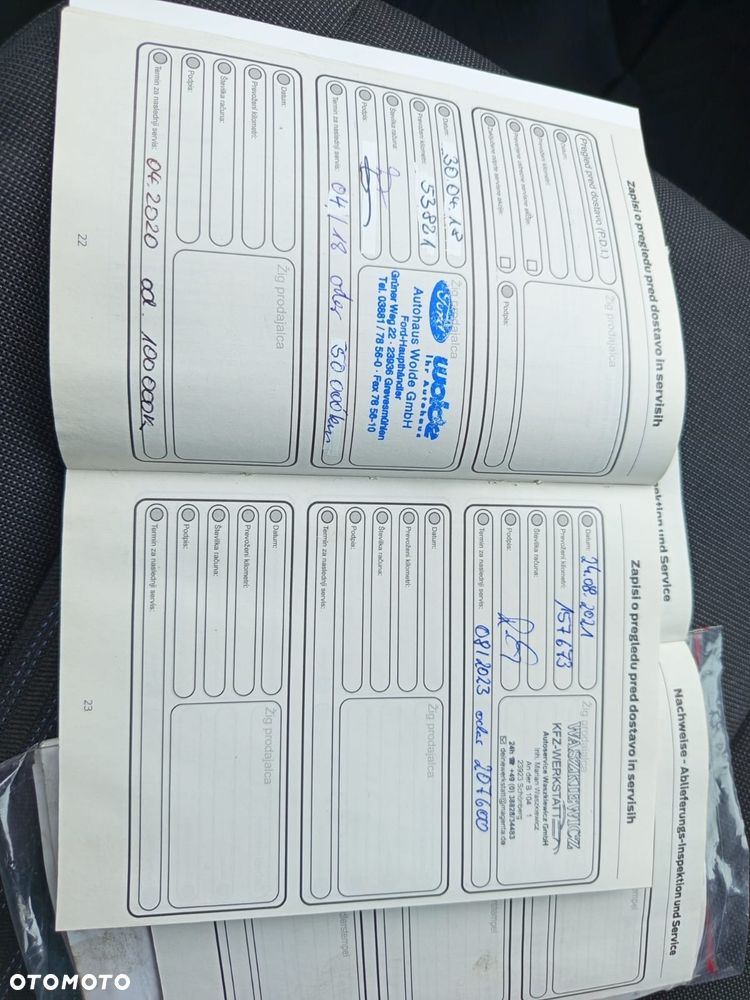 Zapisi o pregledu pred dostavo in servisih
Pregled pred dostavo (P.D.I.)
Datum:
Prevoženi kilometri:
Podpis:
Žig prodajalca
Datum: 30.04.18
Prevoženi kilometri: 53.821
Številka računa:
Podpis:
Termin za naslednji servis: 04/18 oder 50 000 km
Žig prodajalca
Ford wolde
Ihr Autohaus
Autohaus Wolde GmbH
Ford-Haupthändler
Grüner Weg 22 · 23936 Grevesmühlen
Tel. 03881 / 78 56-0 · Fax 78 56-10
Datum:
Prevoženi kilometri:
Številka računa:
Podpis:
Termin za naslednji servis: 04.2020 od. 100 000k
Žig prodajalca
22
Zapisi o pregledu pred dostavo in servisih
Datum: 24.08.2021
Prevoženi kilometri: 157673
Številka računa:
Podpis:
Termin za naslednji servis: 08/2023 oder 207600
Žig prodajalca
WASZKIEWICZ
KFZ-WERKSTATT
Autoservice Waszkiewicz GmbH
Inh. Marian Waszkiewicz
An der B 104 1
23923 Schönberg
24h ☎ +49 (0) 38828/34483
✉ deinewerkstatt@magenta.de
Datum:
Prevoženi kilometri:
Številka računa:
Podpis:
Termin za naslednji servis:
Žig prodajalca
Datum:
Prevoženi kilometri:
Številka računa:
Podpis:
Termin za naslednji servis:
Žig prodajalca
23
und Service
Nachweise - Ablieferungs-Inspektion und Service
OTOMOTO